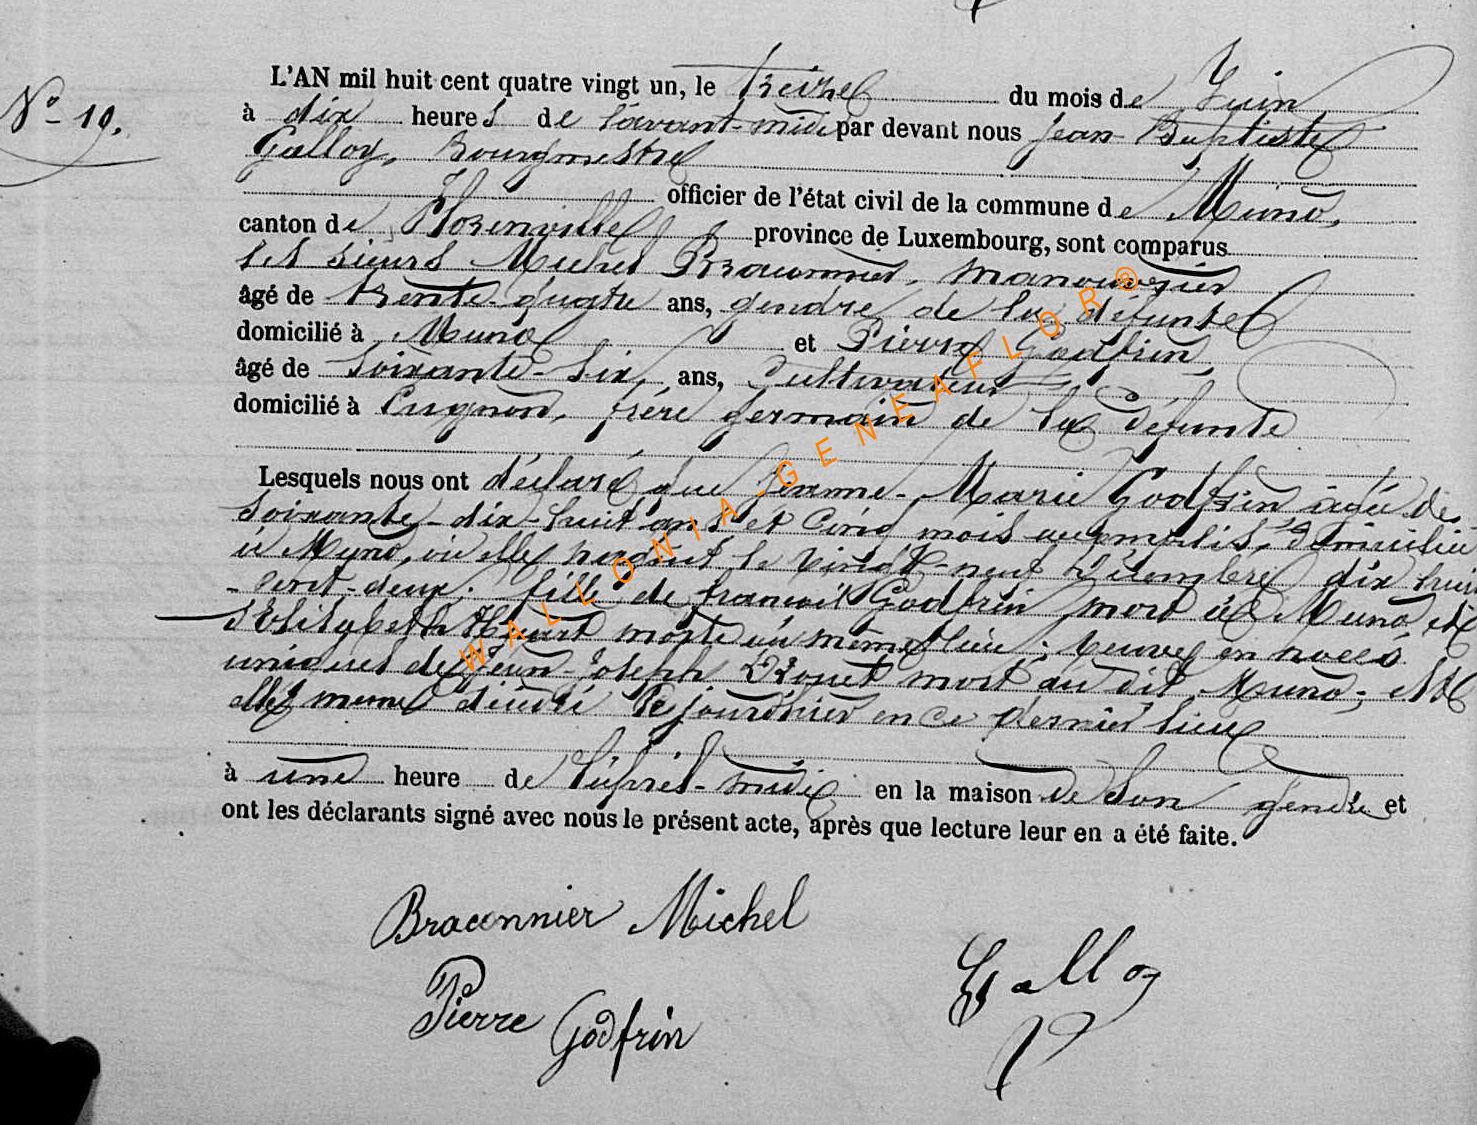 L'AN mil huit cent quatre vingt un, le treize du mois de Juin
N° 19. à dix heures de l'avant-midi par devant nous Jean Baptiste
Galloy, Bourgmestre
officier de l'état civil de la commune de Muno,
canton de Florenville province de Luxembourg, sont comparus
les sieurs Michel Braconnier, manouvrier
âgé de trente-quatre ans, gendre de la défunte
domicilié à Muno et Pierre Godfrin,
âgé de soixante-six ans, Cultivateur
domicilié à Cugnon, frère germain de la défunte
Lesquels nous ont déclaré que Jeanne-Marie Godfrin âgée de
soixante-dix-huit ans et cinq mois accomplis, domiciliée
à Muno, où elle naquit le vingt-neuf Décembre dix huit
-cent-deux. fille de françois Godfrin mort à Muno et
d'Elisabeth morte au même lieu. veuve en noces
uniques de Jean-Joseph Drouet mort au dit Muno; est
elle même décédé ce jourd'hui en ce dernier lieu
à une heure de l'après-midi en la maison de son gendre et
ont les déclarants signé avec nous le présent acte, après que lecture leur en a été faite.
Braconnier Michel
Pierre Godfrin
Galloy
WALLONIA GENEAFLOR®